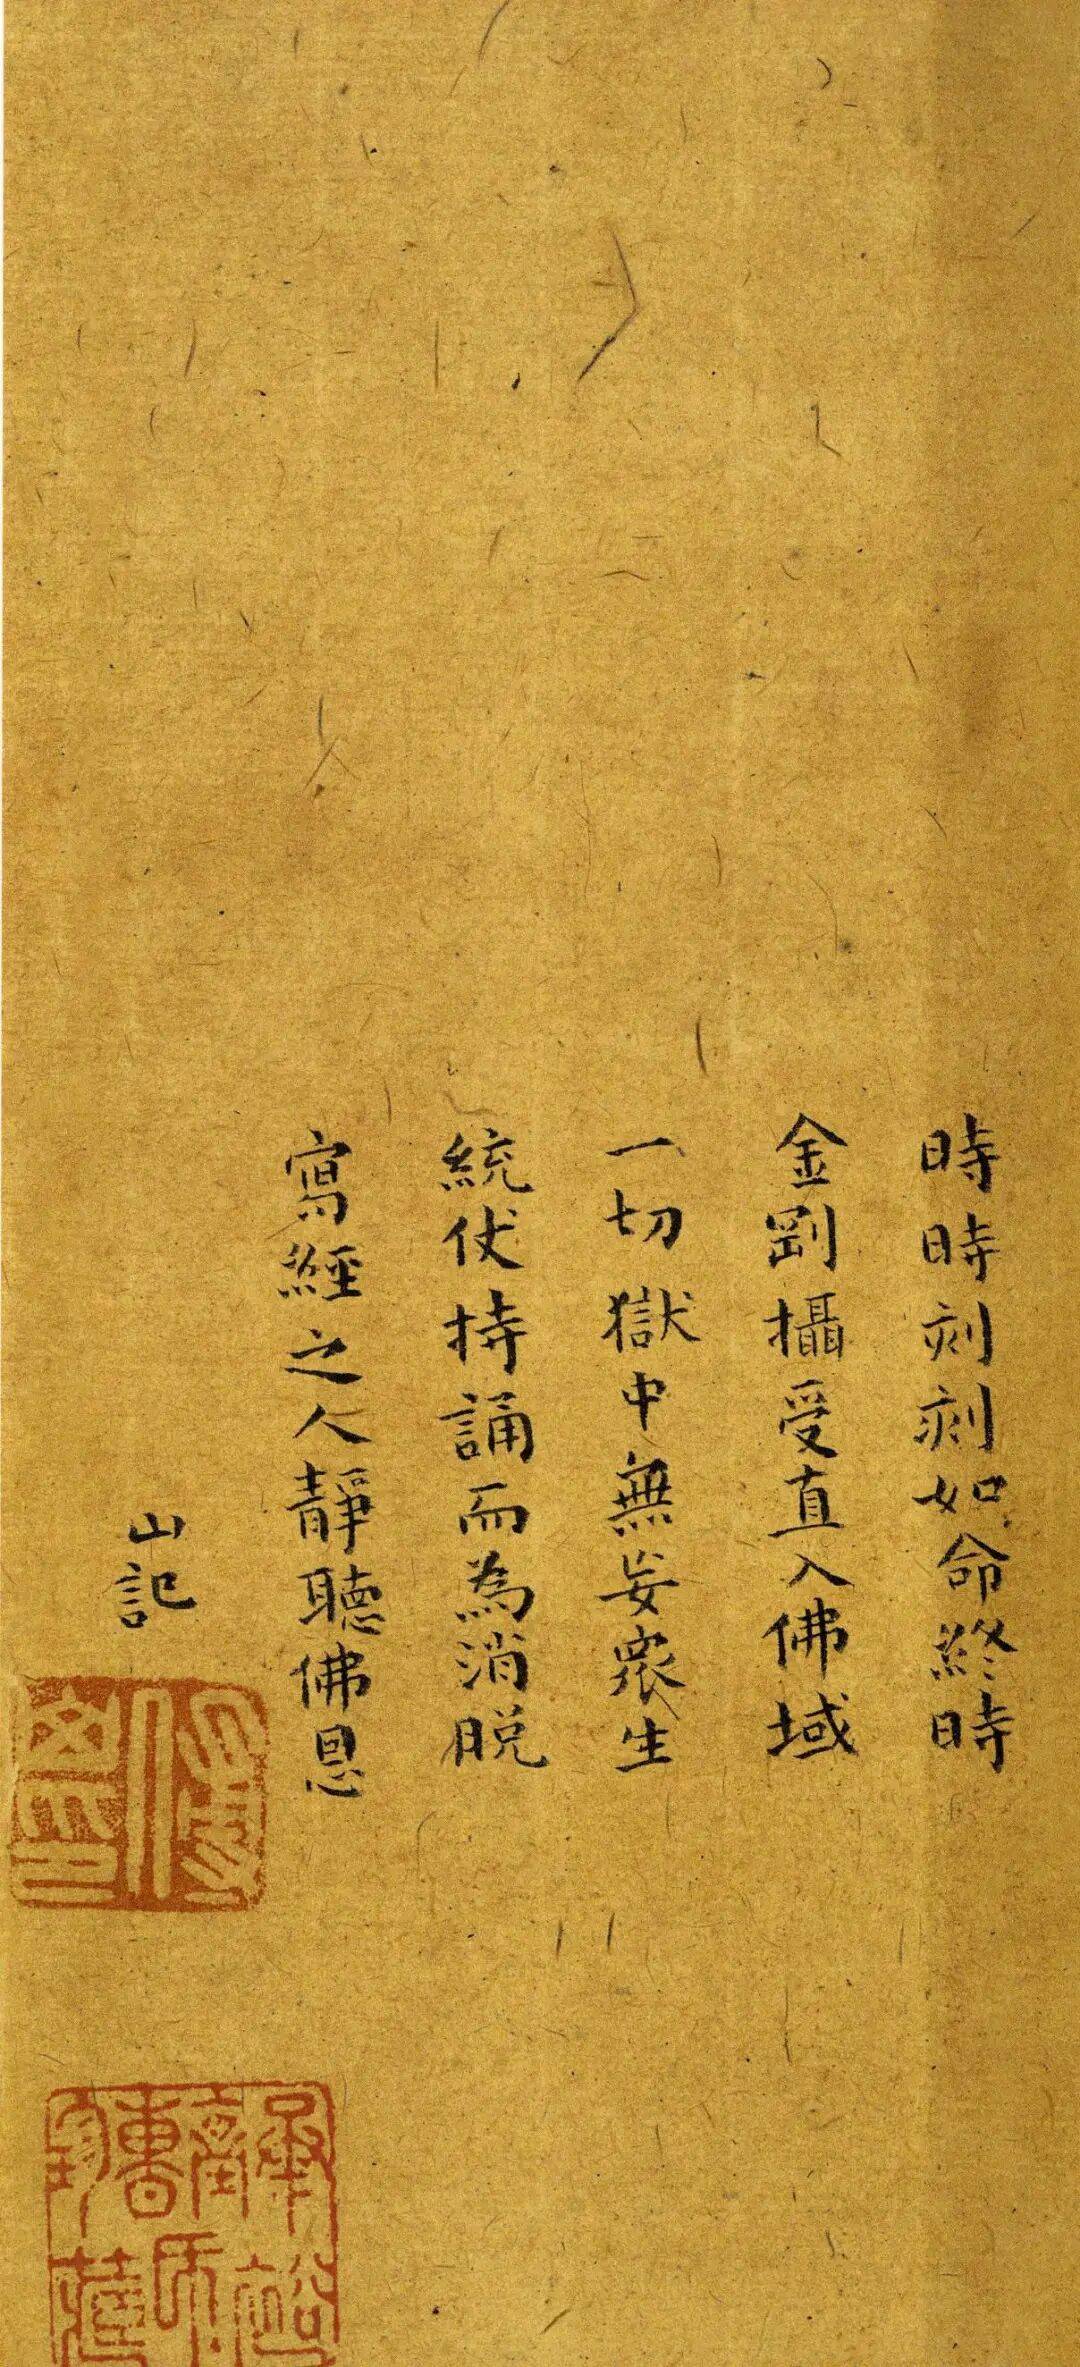 時時刻刻如命終時
金剛攝受直入佛域
一切獄中無妄眾生
統仗持誦而為消脱
寫經之人靜聽佛恩
山記